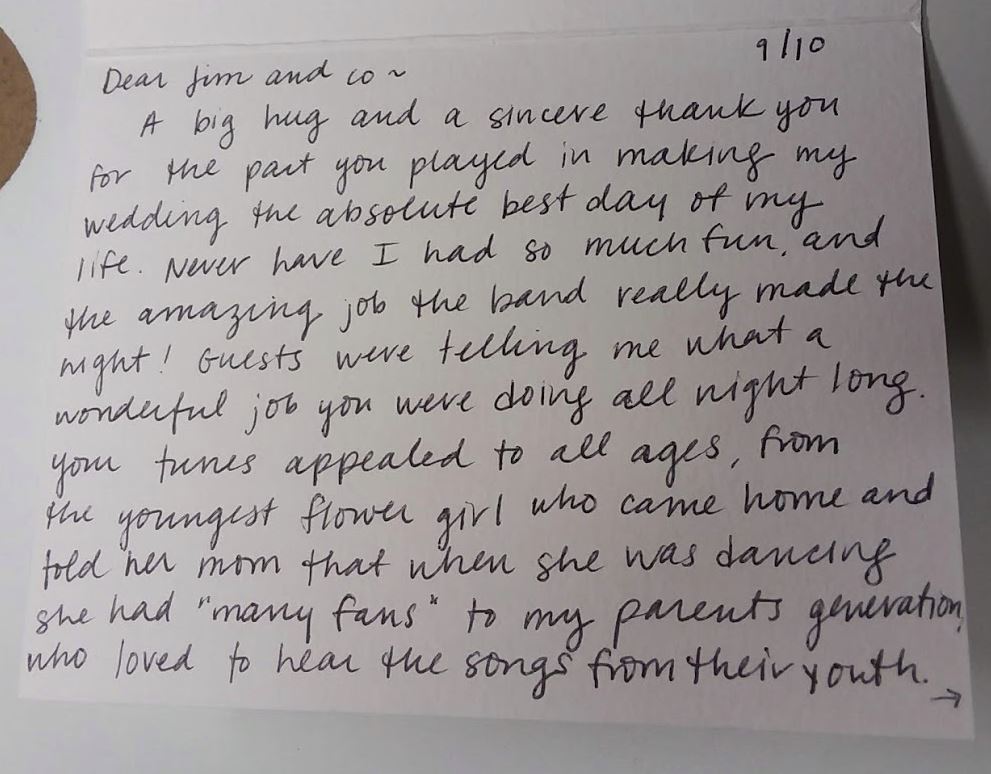 9/10
Dear Jim and co ~
A big hug and a sincere thank you
for the part you played in making my
wedding the absolute best day of my
life. Never have I had so much fun, and
the amazing job the band really made the
night! Guests were telling me what a
wonderful job you were doing all night long.
your tunes appealed to all ages, from
the youngest flower girl who came home and
told her mom that when she was dancing
she had "many fans" to my parents generation,
who loved to hear the songs from their youth.
→